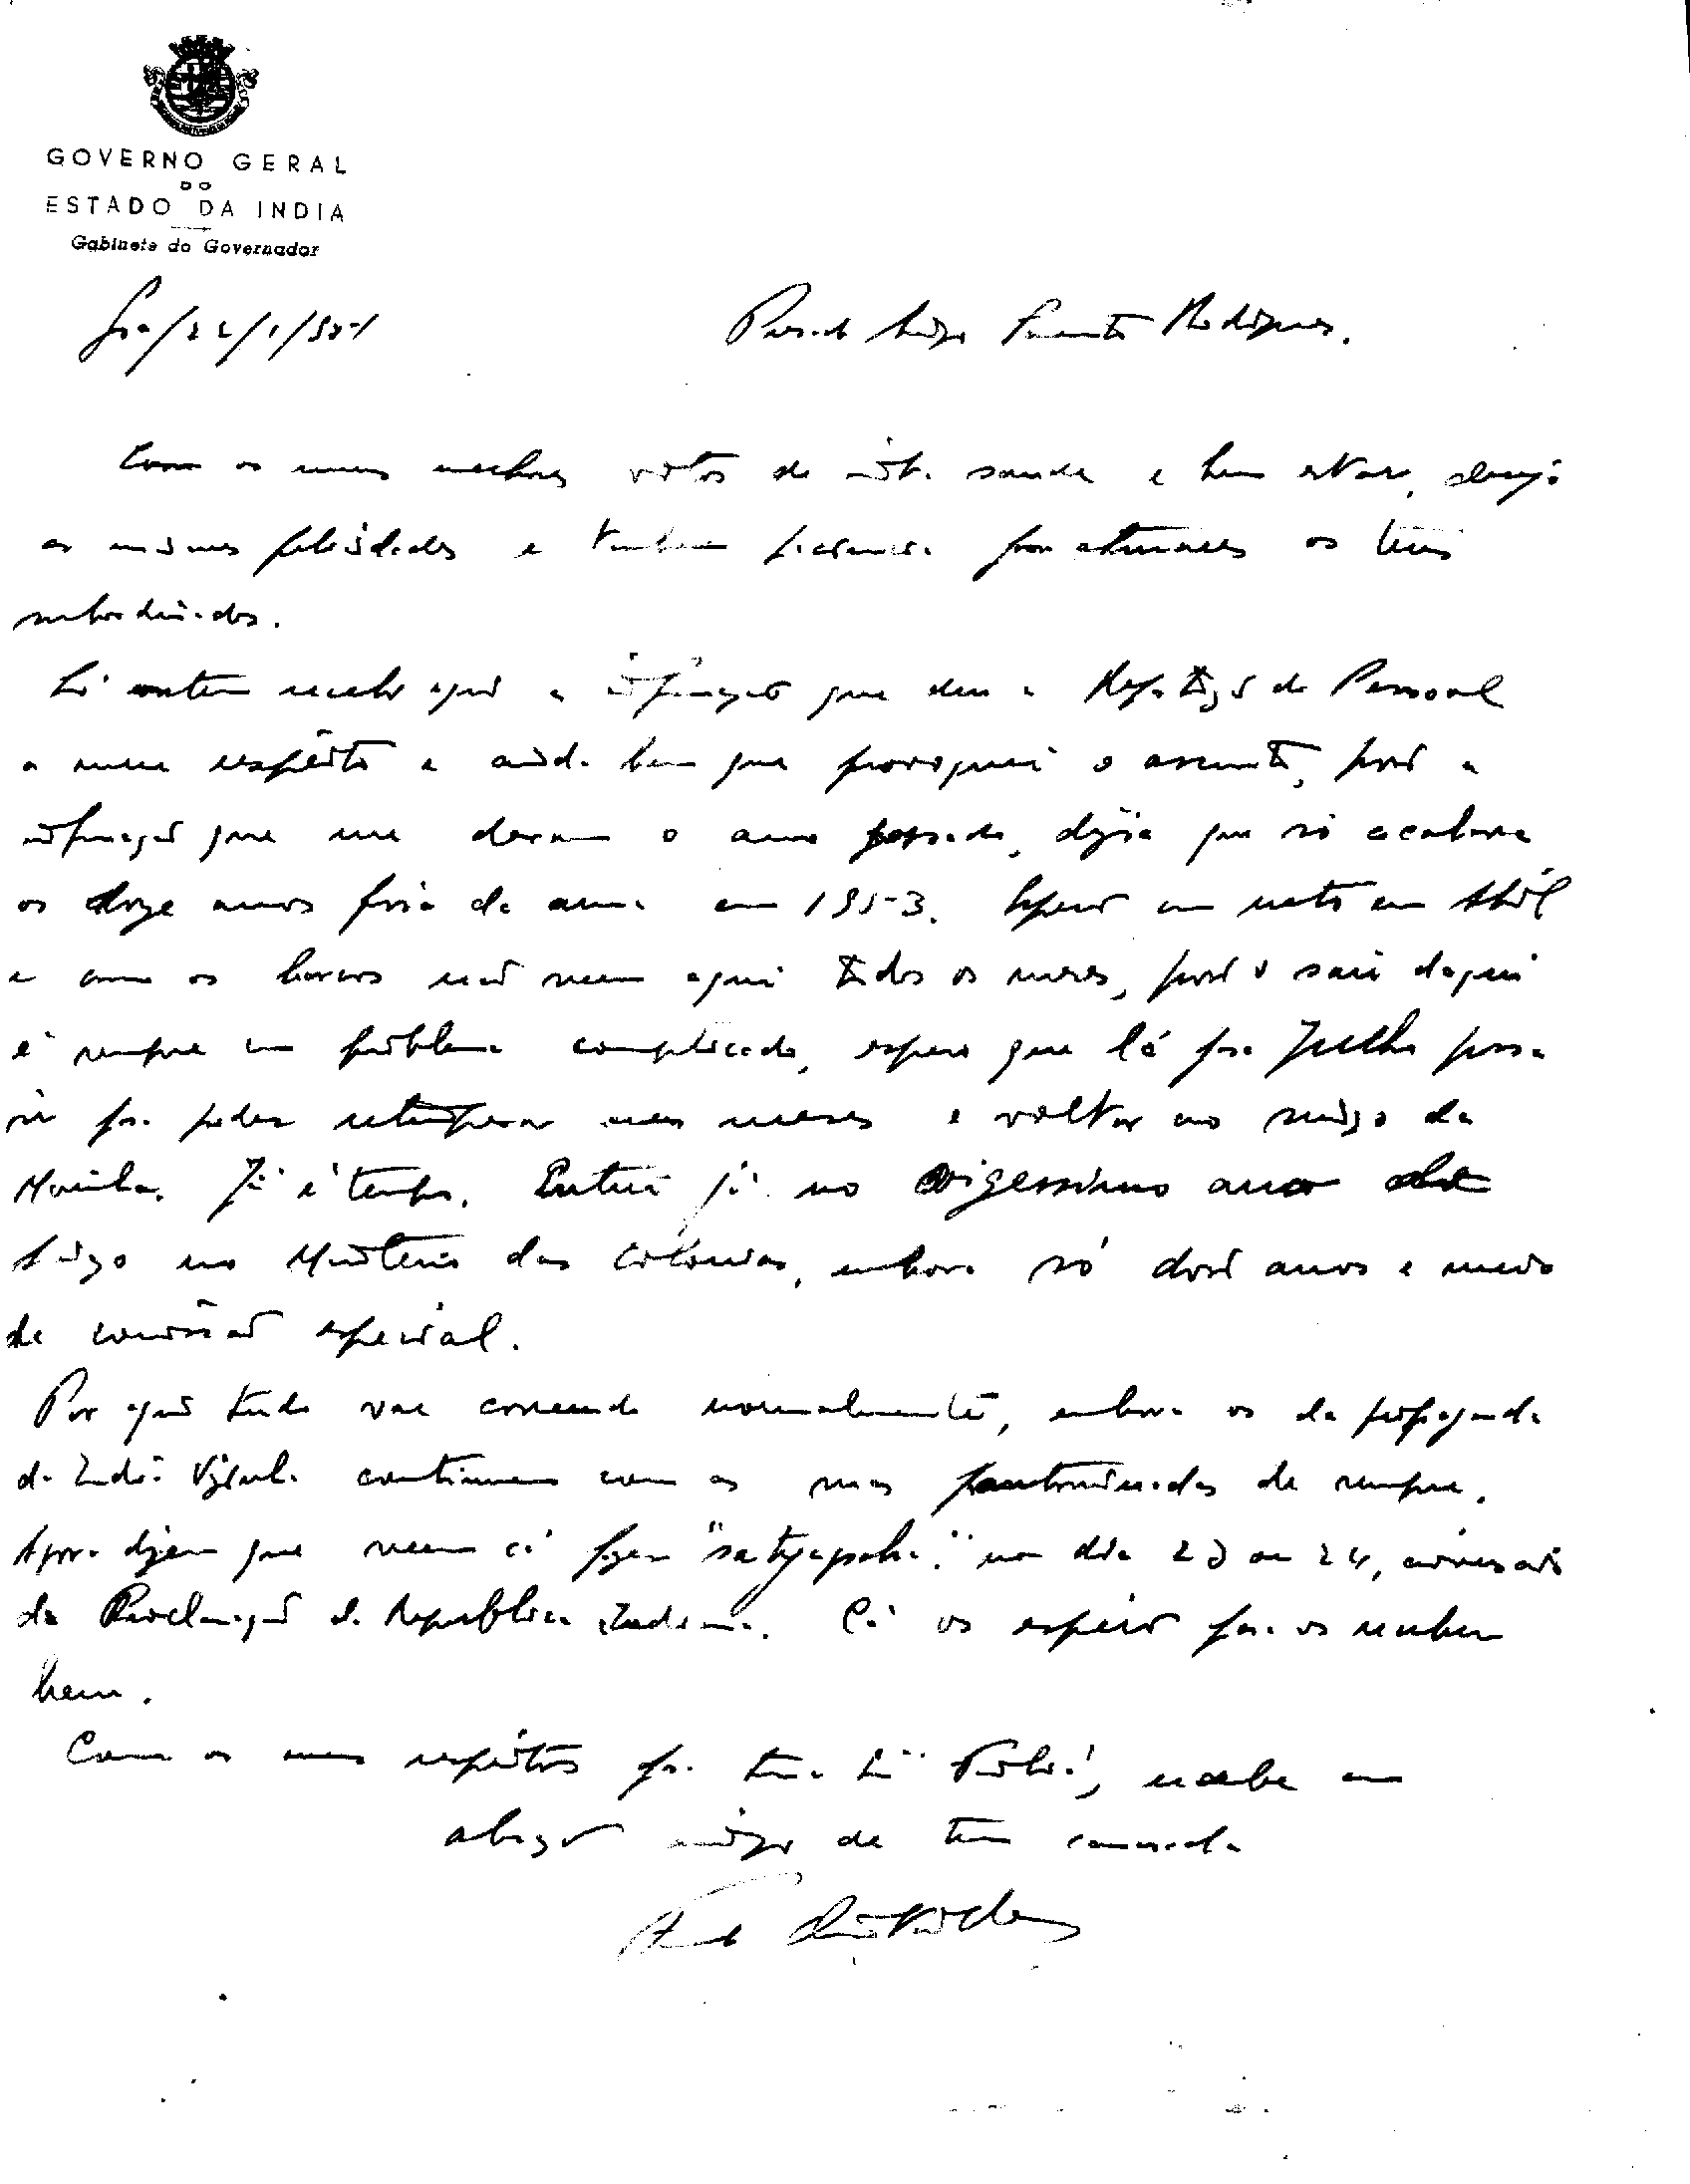 GOVERNO GERAL
DO
ESTADO DA INDIA
Gabinete do Governador
Goa/22/1/
Amigo Sarmento Rodrigues.
Com os meus melhores votos de mta. saude e bem estar, desejo
as mesmas felicidades e tambem os teus
subordinados.
Só ontem recebi aqui a informação que deu a Repartição do Pessoal
a meu respeito e ainda bem que provoquei o assunto, pois a
informação que me deram o ano passado, dizia que só acabava
os doze anos fora da arma em 1953. Espero um neto em Abril
e como os barcos não veem aqui todos os meses, pois o sair daqui
é sempre um problema complicado, espero que lá para Julho possa
ir para poder uns meses e voltar ao serviço da
Marinha. Já é tempo. Entrei já no vigessimo ano de
serviço no Ministerio das Colonias, embora só dois anos e meio
de comissão especial.
Por aqui tudo vae correndo normalmente, embora os da propaganda
da India Vizinha continuem com as suas pantominadas de sempre.
Agora dizem que veem cá fazer "satyagraha" no dia 23 ou 24, aniversario
da Proclamação da Republica Indiana. Cá os espero para os receber
bem.
Com os meus respeitos para tua Sra. recebe um
abraço amigo de teu camarada